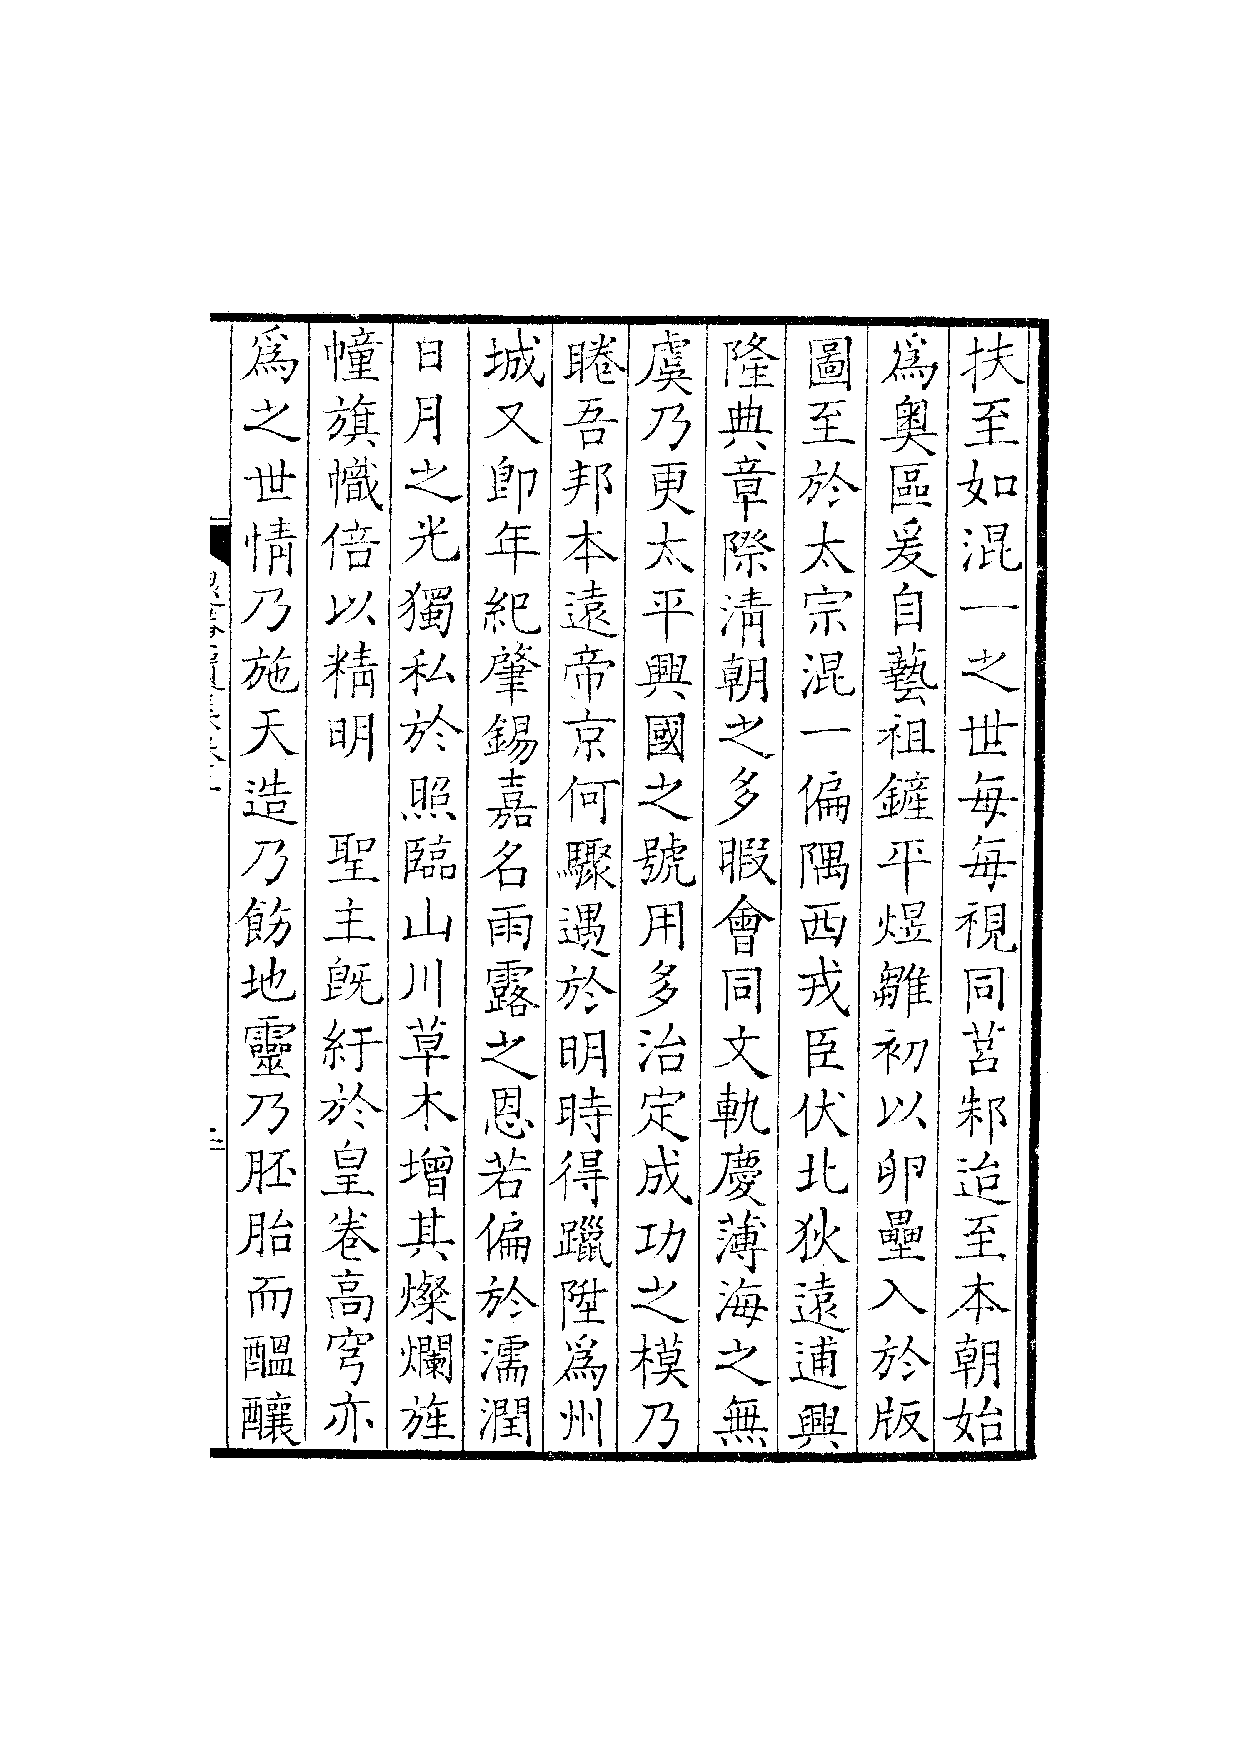 扶至如混一之世每每視同莒邾迨至本朝始
爲奧區爰自藝祖鏟平煜雛初以卵壘入於版
圖至於太宗混一偏隅西戎臣伏北狄遠逋興
隆典章際淸朝之多暇會同文軌慶薄海之無
虞乃更太平興國之號用多治定成功之模乃
睠吾邦本遠帝京何驟遇於明時得躐陞爲州
城又卽年紀肇錫嘉名雨露之恩若偏於濡潤
日月之光獨私於照臨山川草木增其燦爛旌
幢旗幟倍以精明　聖主旣紆於皇眷高穹亦
爲之世情乃施天造乃飭地靈乃胚胎而醞釀